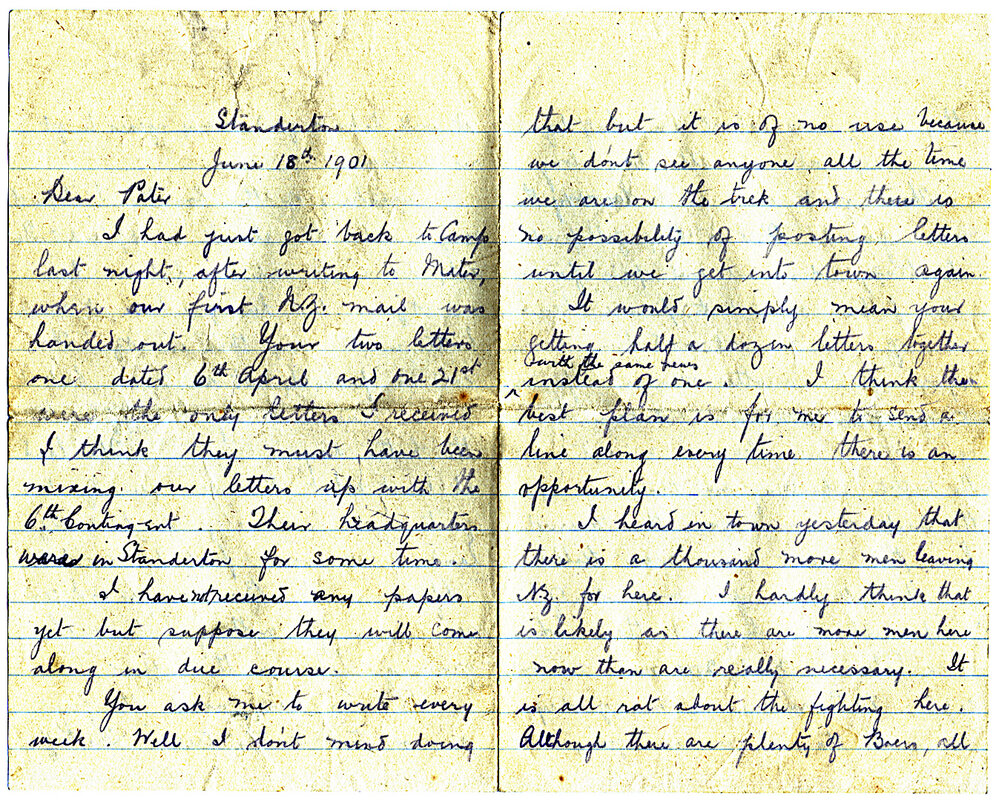 Standerton
June 18th 1901
Dear Pater
I had just got back to Camp
last night, after writing to Mater,
when our first N.Z. mail was
handed out. Your two letters
one dated 6th April and one 21st
were the only letters I received
I think they must have been
mixing our letters up with the
6th Contingent. Their headquarters
were in Standerton for some time.
I have not received any papers
yet but suppose they will come
along in due course.
You ask me to write every
week. Well I don't mind doing
that but it is of no use because
we don't see anyone all the time
we are on the trek and there is
no possibility of posting letters
until we get into town again.
It would simply mean your
getting half a dozen letters together
with the same news
^ instead of one. I think the
best plan is for me to send a
line along every time there is an
opportunity.
I heard in town yesterday that
there is a thousand more men leaving
NZ. for here. I hardly think that
is likely as there are more men here
now than are really necessary. It
is all rot about the fighting here.
Although there are plenty of Boers, all